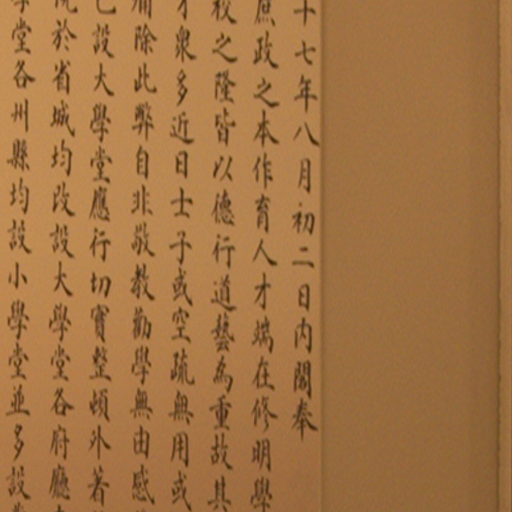 十七年八月初二日內閣奉
庶政之本作育人才端在修明學
校之隆皆以德行道藝為重故其
才衆多近日士子或空疏無用或
除此弊自非敬教勸學無由感
已設大學堂應行切實整頓外著
院於省城均改設大學堂各府廳
學堂各州縣均設小學堂並多設